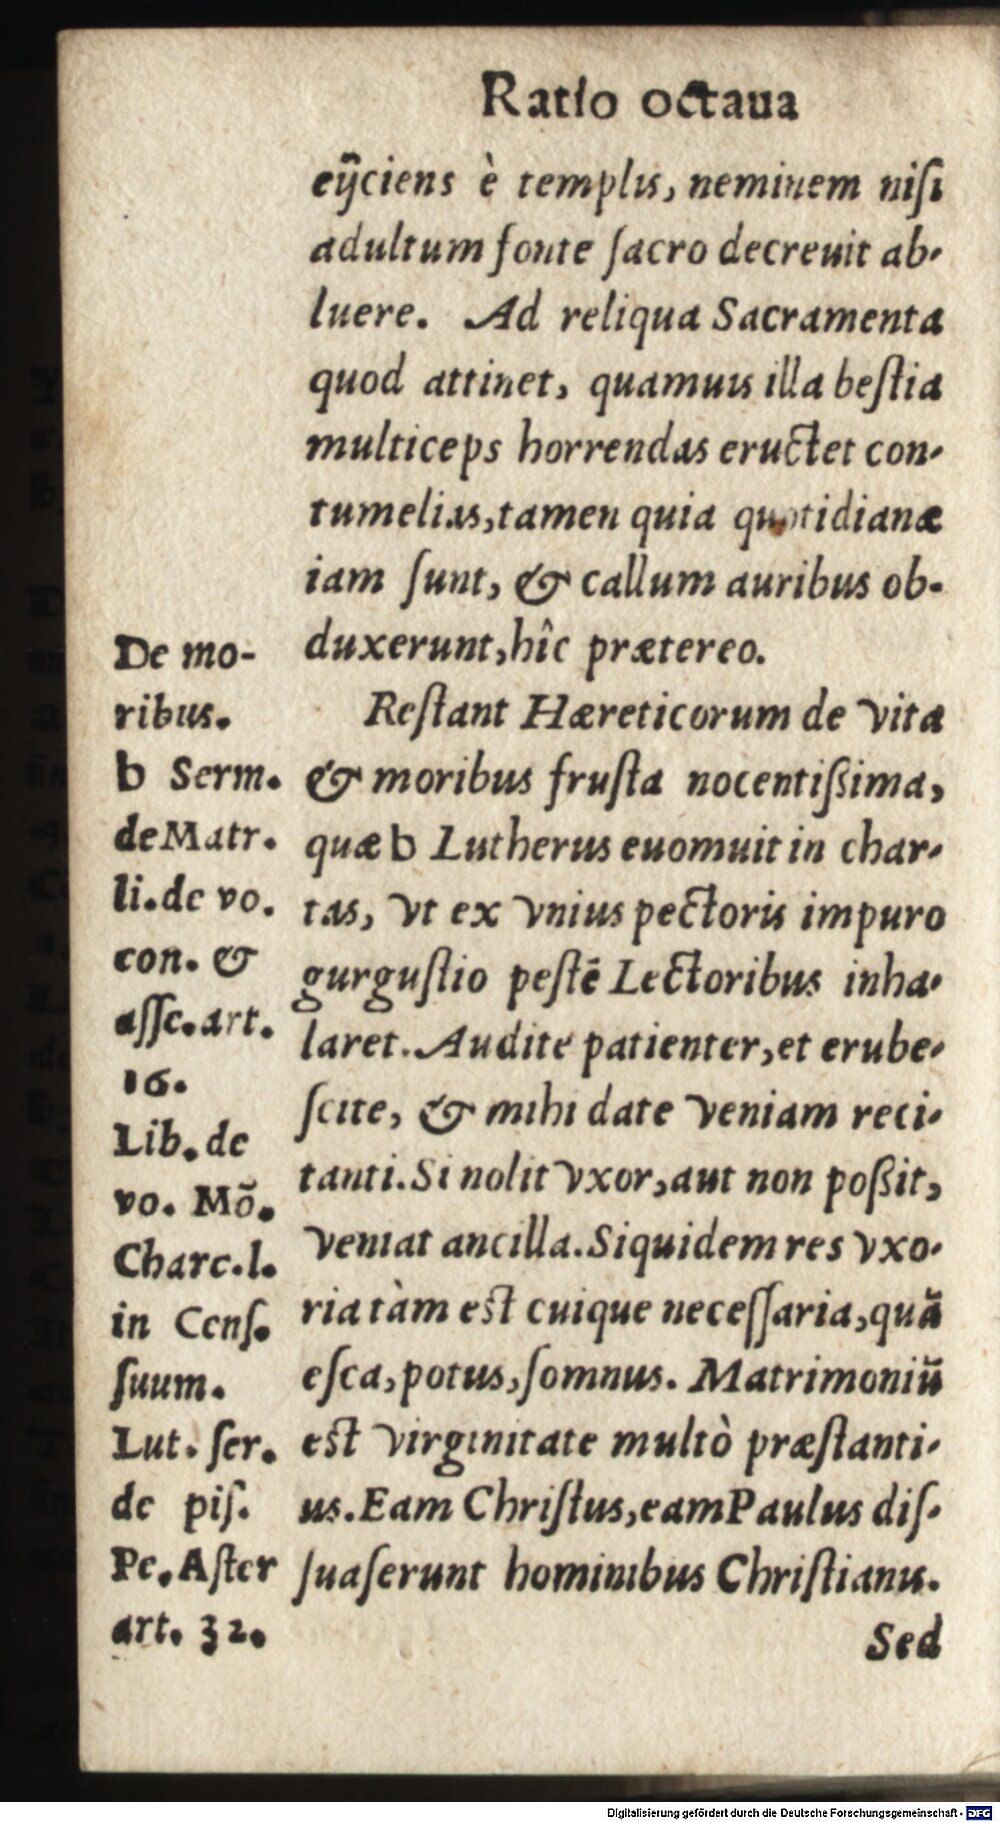 Ratio octaua
eÿciens è templis, neminem niſi
adultum fonte ſacro decreuit ab-
luere. Ad reliqua Sacramenta
quod attinet, quamuis illa beſtia
multiceps horrendas eructet con-
tumelias, tamen quia quotidianæ
iam ſunt, & callum auribus ob-
duxerunt, hîc prætereo.
Reſtant Hæreticorum de vita
& moribus fruſta nocentißima,
quæ b Lutherus euomuit in char-
tas, vt ex vnius pectoris impuro
gurguſtio peſtē Lectoribus inha-
laret. Audite patienter, et erube-
ſcite, & mihi date veniam reci-
tanti. Si nolit vxor, aut non poßit,
veniat ancilla. Siquidem res vxo-
ria tàm est cuique neceſſaria, quā
eſca, potus, ſomnus. Matrimoniū
est virginitate multò præſtanti-
us. Eam Chriſtus, eam Paulus diſ-
ſuaſerunt hominibus Chriſtianis.
Sed
De mo-
ribus.
b Serm.
de Matr.
li. de vo.
con. &
aſſe. art.
16.
Lib. de
vo. Mō.
Charc. l.
in Cenſ.
ſuum.
Lut. ſer.
de piſ.
Pe. Aſter
art. 32.
Digitalisierung gefördert durch die Deutsche Forschungsgemeinschaft - DFG